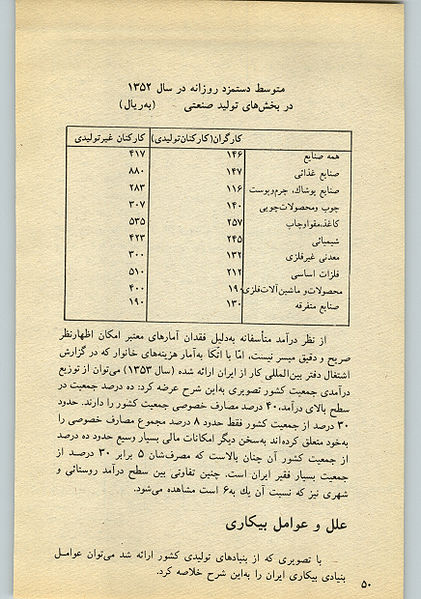 متوسط دستمزد روزانه در سال ۱۳۵۲
در بخش‌های تولید صنعتی (به‌ریال)
کارگران(کارکنان‌تولیدی) کارکنان غیرتولیدی
همه صنایع ۱۴۶ ۴۱۷
صنایع غذائی ۱۴۷ ۸۸۰
صنایع پوشاك، چرم‌وپوست ۱۱۶ ۲۸۳
چوب ومحصولات‌چوبی ۱۴۰ ۳۰۷
کاغذ،مقواوچاپ ۲۵۷ ۵۳۵
شیمیائی ۲۴۵ ۴۲۳
معدنی غیرفلزی ۱۳۲ ۳۰۰
فلزات اساسی ۲۱۲ ۵۱۰
محصولات‌و ماشین‌آلات‌فلزی ۱۹۰ ۴۰۰
صنایع متفرقه ۱۳۰ ۱۹۰
از نظر درآمد متأسفانه به‌دلیل فقدان آمارهای معتبر امکان اظهارنظر
صریح و دقیق میسر نیست، امّا با اتّکا به‌آمار هزینه‌های خانوار که در گزارش
اشتغال دفتر بین‌المللی کار از ایران ارائه شده (سال ۱۳۵۳) می‌توان از توزیع
درآمدی جمعیت کشور تصویری به‌این شرح عرضه کرد: ده درصد جمعیت در
سطح بالای درآمد،۴۰ درصد مصارف خصوصی جمعیت کشور را دارند. حدود
۳۰ درصد از جمعیت کشور فقط حدود ۸ درصد مجموع مصارف خصوصی را
به‌خود متعلق کرده‌اند به‌سخن دیگر امکانات مالی بسیار وسیع حدود ده درصد
از جمعیت کشور آن چنان بالاست که مصرف‌شان ۵ برابر ۳۰ درصد از
جمعیت بسیار فقیر ایران است. چنین تفاوتی بین سطح درآمد روستائی و
شهری نیز که نسبت آن یك به‌۶ است مشاهده می‌شود.
علل و عوامل بیکاری
با تصویری که از بنیادهای تولیدی کشور ارائه شد می‌توان عوامل
بنیادی بیکاری ایران را به‌این شرح خلاصه کرد.
۵۰